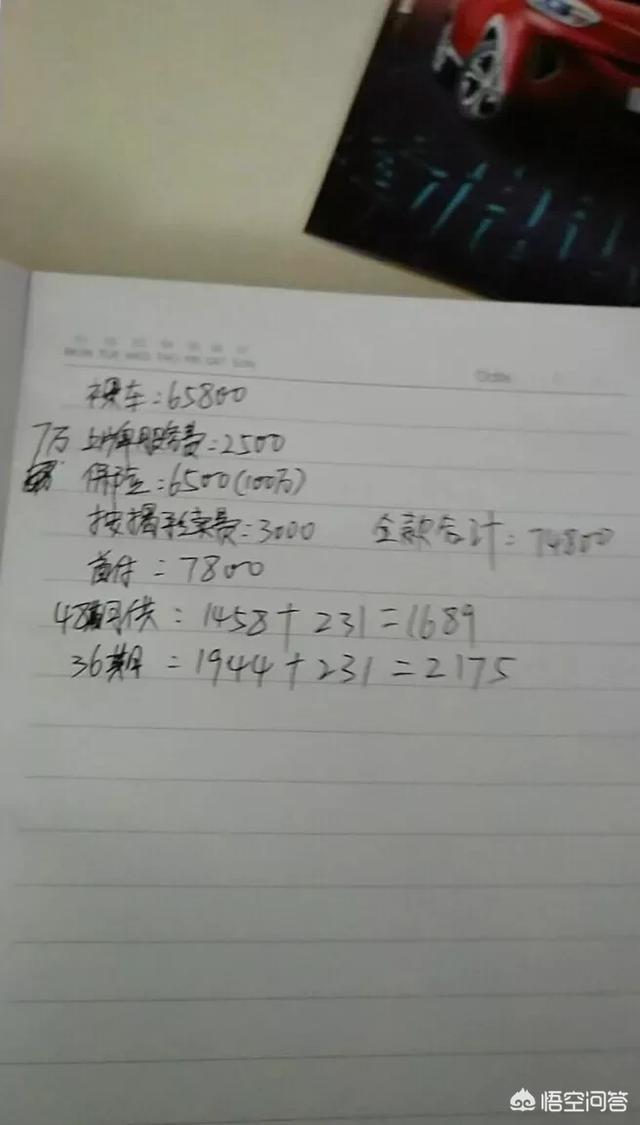 MON TUE WED THU FRI SAT SUN
Date
裸车:65800
7万 上牌服务费=2500
保险:6500(100万)
按揭手续费:3000 全款合计:74800
首付:7800
48期月供:1458+231=1689
36期=1944+231=2175
悟空问答